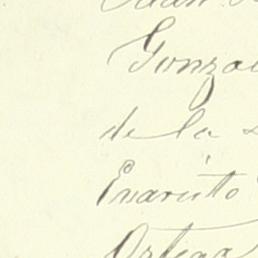 Juan
Gonza
de la
Evaristo
Ortega